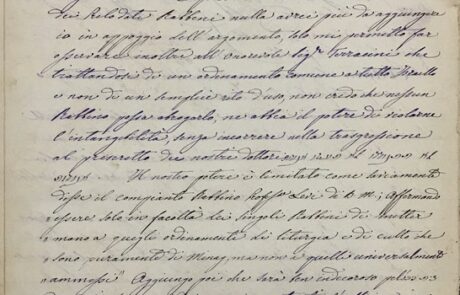 dei Lolodate Rabbini nulla avrei più da aggiungere
io in appoggio dell'argomento, solo mi permetto far
osservare inoltre all'onorevole Sigr. Terracini che
trattandosi di un ordinamento comune a tutto Israello
e non di un semplice rito d'uso, non credo che nessun
Rabbino possa abrogarlo, ne abbia il potere di violarne
l'intangibilità, senza incorrere nella trasgressione
al precetto dei nostri dottori
Il nostro potere è limitato come saviamente
disse il compianto Rabbino Levi di B. M.; affermando
essere solo in facoltà dei singoli Rabbini di metter
mano a quegli ordinamenti di liturgia e di culto che
sono puramente di Minag, ma non a quelli universalmente
ammessi" Aggiungo poi che sarà ben indecoroso